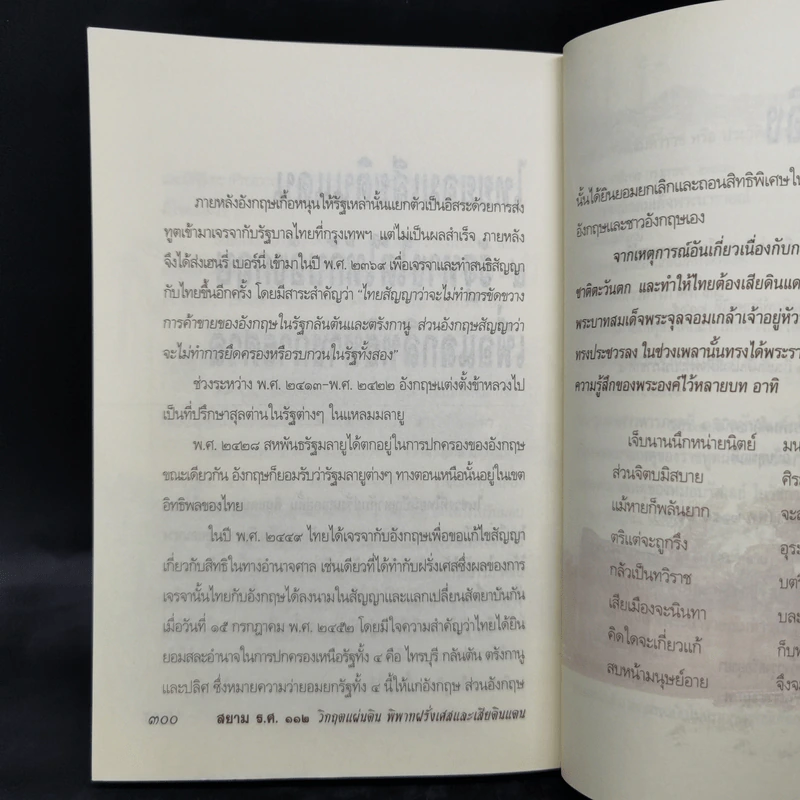 ภายหลังอังกฤษเกื้อหนุนให้รัฐเหล่านั้นแยกตัวเป็นอิสระด้วยการส่ง
ทูตเข้ามาเจรจากับรัฐบาลไทยที่กรุงเทพฯ แต่ไม่เป็นผลสำเร็จ ภายหลัง
จึงได้ส่งเฮนรี่ เบอร์นี่ เข้ามาในปี พ.ศ. ๒๓๖๙ เพื่อเจรจาและทำสนธิสัญญา
กับไทยขึ้นอีกครั้ง โดยมีสาระสำคัญว่า “ไทยสัญญาว่าจะไม่ทำการขัดขวาง
การค้าขายของอังกฤษในรัฐกลันตันและตรังกานู ส่วนอังกฤษสัญญาว่า
จะไม่ทำการยึดครองหรือรบกวนในรัฐทั้งสอง”
ช่วงระหว่าง พ.ศ. ๒๔๑๓-พ.ศ. ๒๔๒๒ อังกฤษแต่งตั้งข้าหลวงไป
เป็นที่ปรึกษาสุลต่านในรัฐต่างๆ ในแหลมมลายู
พ.ศ. ๒๔๒๘ สหพันธรัฐมลายูได้ตกอยู่ในการปกครองของอังกฤษ
ขณะเดียวกัน อังกฤษก็ยอมรับว่ารัฐมลายูต่างๆ ทางตอนเหนือนั้นอยู่ในเขต
อิทธิพลของไทย
ในปี พ.ศ. ๒๔๔๙ ไทยได้เจรจากับอังกฤษเพื่อขอแก้ไขสัญญา
เกี่ยวกับสิทธิในทางอำนาจศาล เช่นเดียวที่ได้ทำกับฝรั่งเศสซึ่งผลของการ
เจรจานั้นไทยกับอังกฤษได้ลงนามในสัญญาและแลกเปลี่ยนสัตยาบันกัน
เมื่อวันที่ ๑๕ กรกฎาคม พ.ศ. ๒๔๕๒ โดยมีใจความสำคัญว่าไทยได้ยิน
ยอมสละอำนาจในการปกครองเหนือรัฐทั้ง ๔ คือ ไทรบุรี กลันตัน ตรังกานู
และปลิศ ซึ่งหมายความว่ายอมยกรัฐทั้ง ๔ นี้ให้แก่อังกฤษ ส่วนอังกฤษ
๓๐๐ สยาม ร.ศ. ๑๑๒ วิกฤตแผ่นดิน พิพาทฝรั่งเศสและเสียดินแดน
นั้นได้ยินยอมยกเลิกและถอนสิทธิพิเศษใน
อังกฤษและชาวอังกฤษเอง
จากเหตุการณ์อันเกี่ยวเนื่องกับก
ชาติตะวันตก และทำให้ไทยต้องเสียดินแด
พระบาทสมเด็จพระจุลจอมเกล้าเจ้าอยู่หัว
ทรงประชวรลง ในช่วงเพลานั้นทรงได้พระรา
ความรู้สึกของพระองค์ไว้หลายบท อาทิ
เจ็บนานนึกหน่ายนิตย์ มน
ส่วนจิตบมิสบาย ศิระ
แม้หายก็พลันยาก จะ
ตริแต่จะถูกรึง อุระ
กลัวเป็นทวิราช บตริ
เสียเมืองจะนินทา บละ
คิดใดจะเกี่ยวแก้ ก็บ
สบหน้ามนุษย์อาย จึงจ